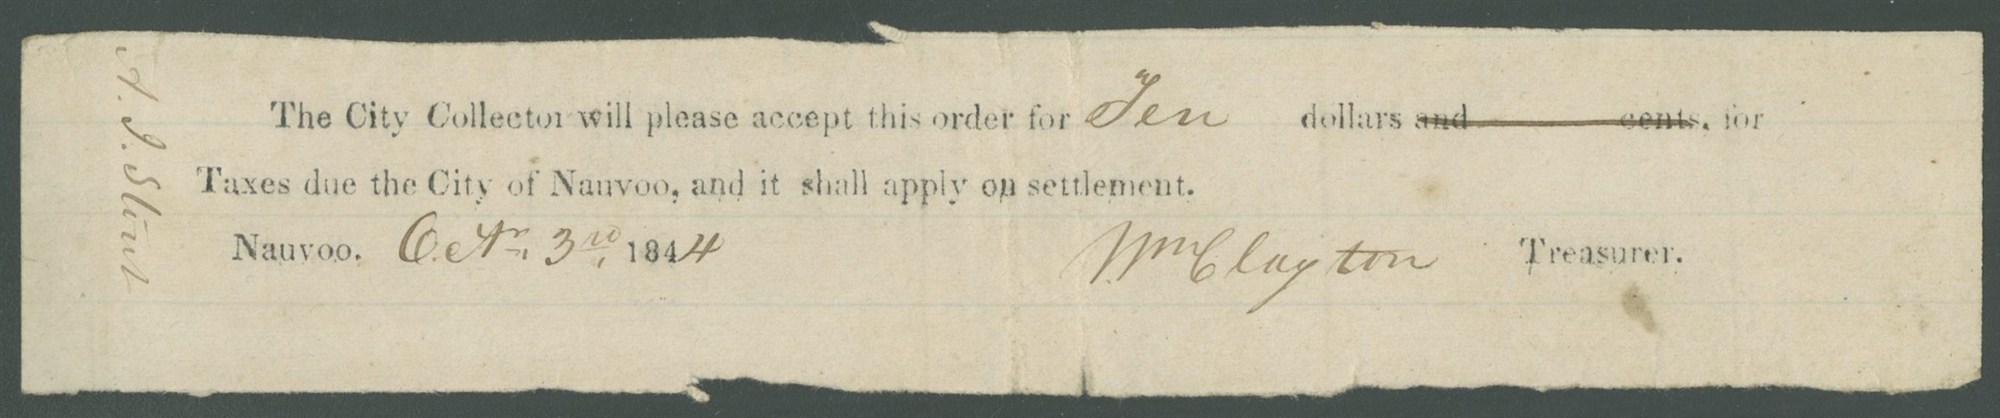 The City Collector will please accept this order for Ten dollars and cents, for
Taxes due the City of Nauvoo, and it shall apply on settlement.
Nauvoo. Octr. 3rd, 1844 Wm Clayton Treasurer.
A. J. Stout